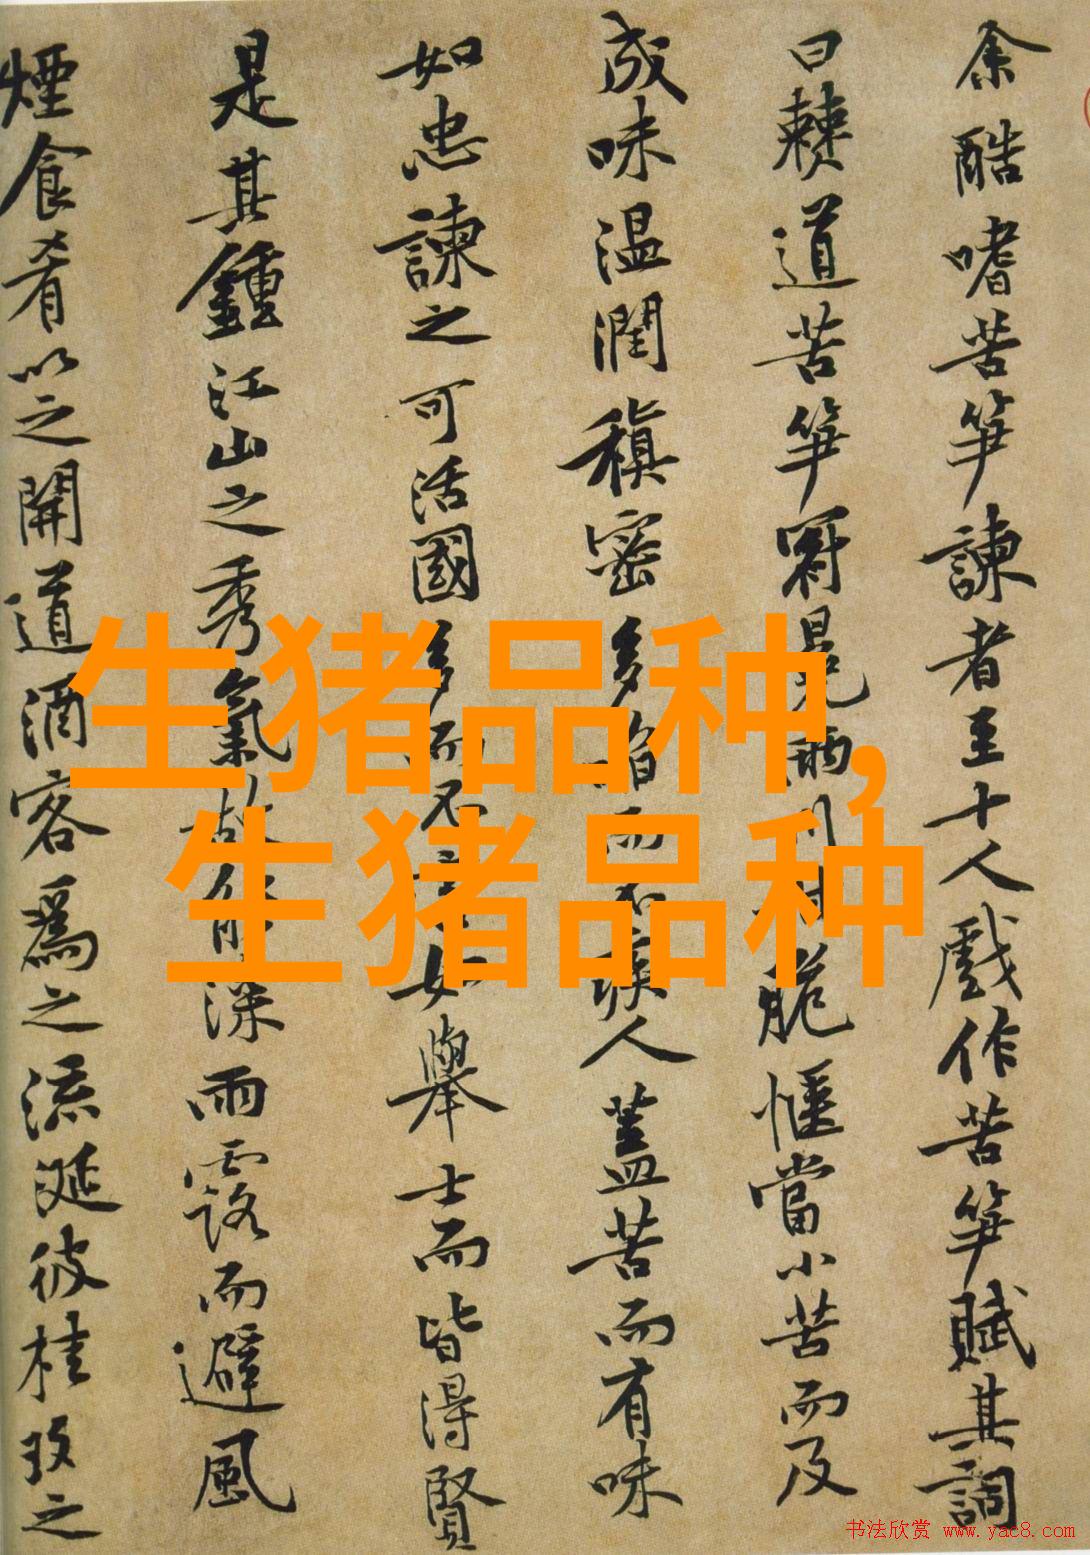 余酷嗜苦笋諫者至十人戲作苦笋賦其詞
曰僰道苦笋冠冕兩川甘脆愜當小苦而及
成味温潤稹密多啗而不疾人蓋苦而有味
如忠諫之可活國多而不害如舉士而皆得賢
是其鍾江山之秀氣故能深雨露而避風
煙食肴以之開道酒客爲之流涎彼桂玫之
生猪品种,
生猪品种
书法欣赏 www.yac8.com